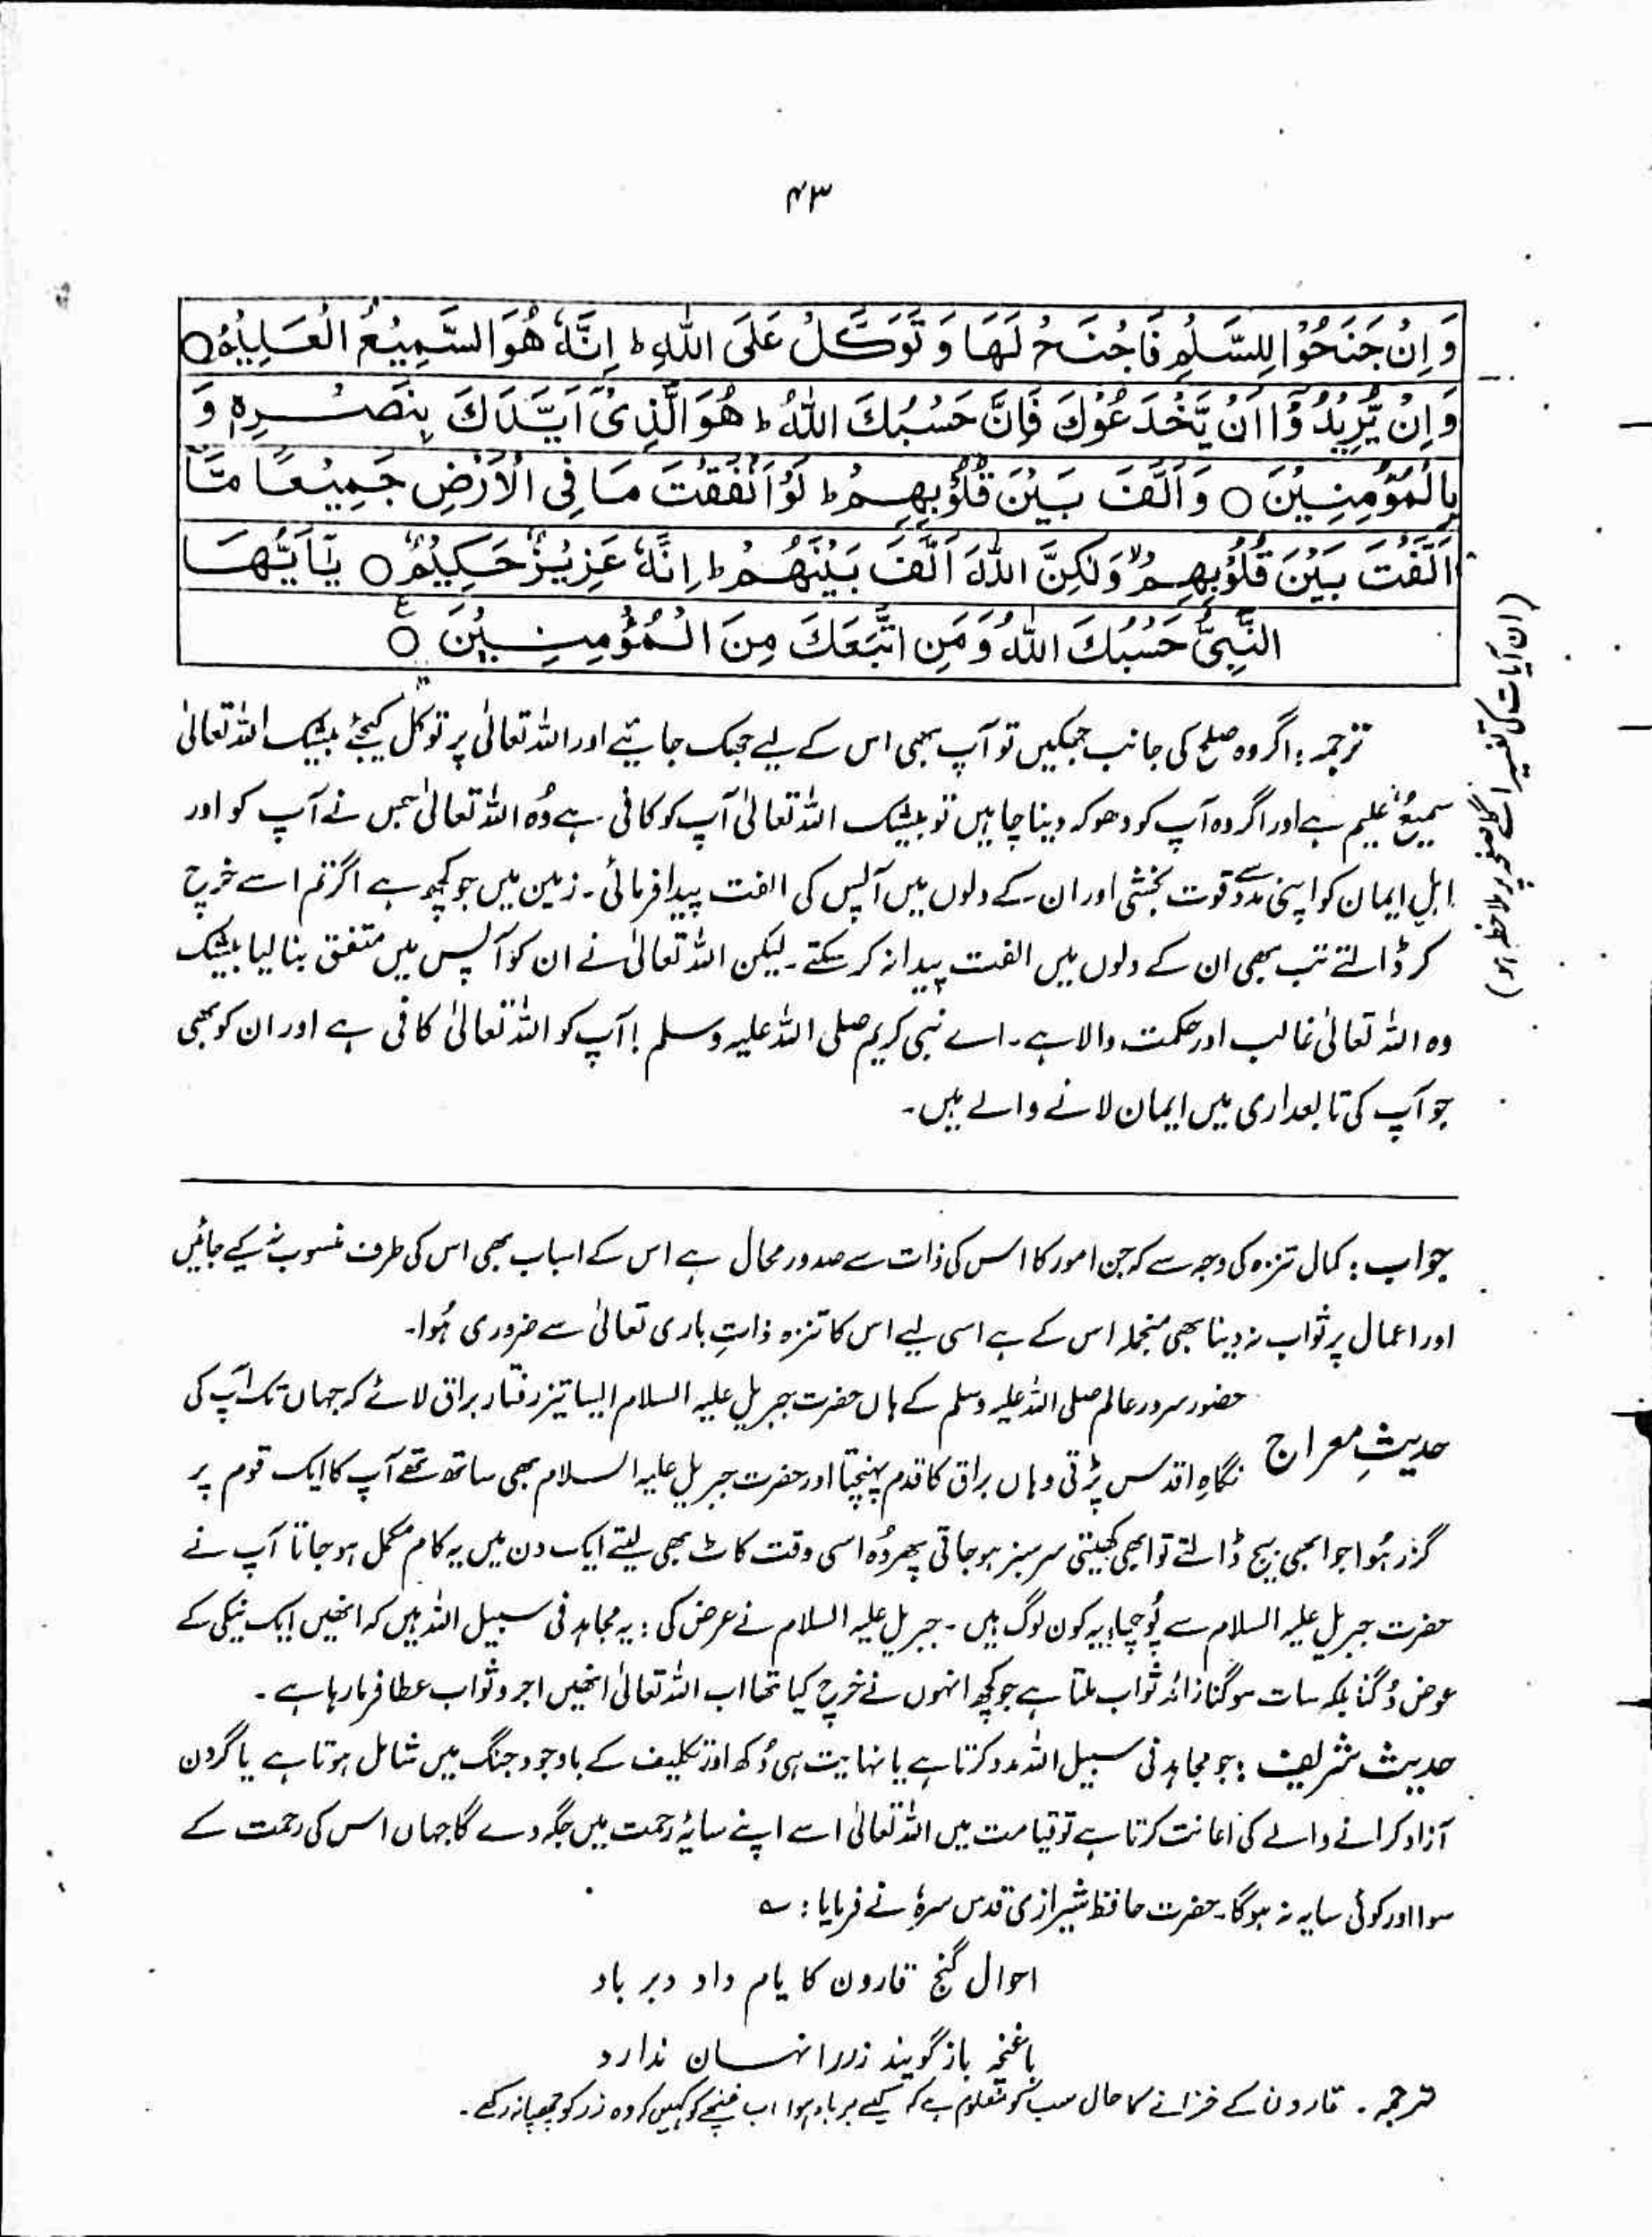 ۴۳
وَ اِنْ جَنَحُوْا لِلسَّلْمِ فَاجْنَحْ لَهَا وَ تَوَكَّلْ عَلَى اللهِ ط اِنَّهٗ هُوَ السَّمِيْعُ الْعَلِيْمُ ○
وَ اِنْ يُّرِيْدُوْٓا اَنْ يَّخْدَعُوْكَ فَاِنَّ حَسْبَكَ اللهُ ط هُوَ الَّذِيْٓ اَيَّدَكَ بِنَصْرِهٖ وَ
بِالْمُؤْمِنِيْنَ ○ وَ اَلَّفَ بَيْنَ قُلُوْبِهِمْ ط لَوْ اَنْفَقْتَ مَا فِى الْاَرْضِ جَمِيْعًا مَّآ
اَلَّفْتَ بَيْنَ قُلُوْبِهِمْ ۙ وَلٰكِنَّ اللهَ اَلَّفَ بَيْنَهُمْ ط اِنَّهٗ عَزِيْزٌ حَكِيْمٌ ○ يٰٓاَيُّهَا
النَّبِيُّ حَسْبُكَ اللهُ وَمَنِ اتَّبَعَكَ مِنَ الْمُؤْمِنِيْنَ ○ ع
ترجمہ : اگر وہ صلح کی جانب جھکیں تو آپ بھی اس کے لیے جھک جائیے اور اللہ تعالیٰ پر توکل کیجئے بیشک اللہ تعالیٰ
سمیعٌ علیم ہے اور اگر وہ آپ کو دھوکہ دینا چاہیں تو بیشک اللہ تعالیٰ آپ کو کافی ہے وُہ اللہ تعالیٰ جس نے آپ کو اور
اہلِ ایمان کو اپنی مدد سے قوت بخشی اور ان کے دلوں میں آپس کی الفت پیدا فرمائی۔ زمین میں جو کچھ ہے اگر تم اسے خرچ
کر ڈالتے تب بھی ان کے دلوں میں الفت پیدا نہ کر سکتے۔ لیکن اللہ تعالیٰ نے ان کو آپس میں متفق بنا لیا بیشک
وہ اللہ تعالیٰ غالب اور حکمت والا ہے۔ اے نبی کریم صلی اللہ علیہ وسلم ! آپ کو اللہ تعالیٰ کافی ہے اور ان کو بھی
جو آپ کی تابعداری میں ایمان لانے والے ہیں۔
جواب : کمال تنزہ کی وجہ سے کہ جن امور کا اس کی ذات سے صدور محال ہے اس کے اسباب بھی اس کی طرف منسوب نہ کیے جائیں
اور اعمال پر ثواب نہ دینا بھی منجملہ اس کے ہے اسی لیے اس کا تنزہ ذاتِ باری تعالیٰ سے ضروری ہُوا۔
حضور سرور عالم صلی اللہ علیہ وسلم کے ہاں حضرت جبریل علیہ السلام ایسا تیز رفتار براق لائے کہ جہاں تک آپ کی
حدیثِ معراج
نگاہِ اقدس پڑتی وہاں براق کا قدم پہنچتا اور حضرت جبریل علیہ السلام بھی ساتھ تھے آپ کا ایک قوم پر
گزر ہُوا جو ابھی بیج ڈالتے تو ابھی کھیتی سرسبز ہو جاتی پھر وُہ اسی وقت کاٹ بھی لیتے ایک دن میں یہ کام مکمل ہو جاتا آپ نے
حضرت جبریل علیہ السلام سے پُوچھا، یہ کون لوگ ہیں۔ جبریل علیہ السلام نے عرض کی : یہ مجاہد فی سبیل اللہ ہیں کہ انھیں ایک نیکی کے
عوض دُگنا بلکہ سات سو گنا زائد ثواب ملتا ہے جو کچھ انہوں نے خرچ کیا تھا اب اللہ تعالیٰ انھیں اجر و ثواب عطا فرما رہا ہے۔
حدیث شریف : جو مجاہد فی سبیل اللہ مدد کرتا ہے یا نہایت ہی دُکھ اور تکلیف کے باوجود جنگ میں شامل ہوتا ہے یا گردن
آزاد کرانے والے کی اعانت کرتا ہے تو قیامت میں اللہ تعالیٰ اسے اپنے سایۂ رحمت میں جگہ دے گا جہاں اس کی رحمت کے
سوا اور کوئی سایہ نہ ہوگا۔ حضرت حافظ شیرازی قدس سرہٗ نے فرمایا : ؎
احوال گنج قارون کا یام داد دبر باد
باغنچہ باز گویند زررا نہان ندارد
ترجمہ۔ قارون کے خزانے کا حال سب کو معلوم ہے کہ کیسے برباد ہوا اب غنچے کو کہیں کہ وہ زر کو چھپا نہ رکھے۔